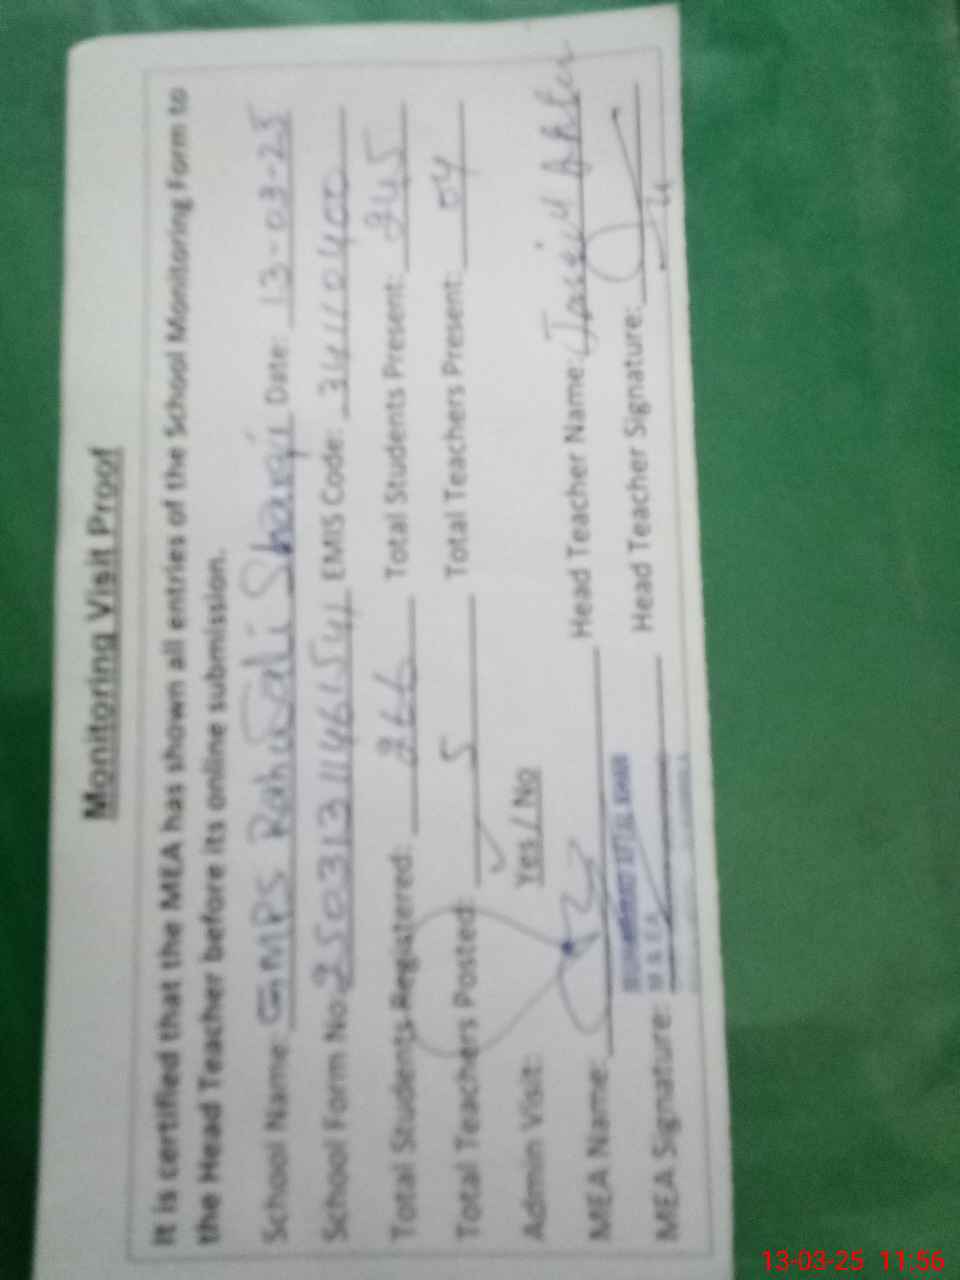 Monitoring Visit Proof
It is certified that the MEA has shown all entries of the School Monitoring Form to
the Head Teacher before its online submission.
School Name: GMPS Rahwali Sharqi Date: 13-03-25
School Form No: EMIS Code: 34110400
Total Students Registered: 266 Total Students Present: 245
Total Teachers Posted: 5 Total Teachers Present: 04
Admin Visit: Yes / No
MEA Name: Head Teacher Name:
MEA Signature: Head Teacher Signature:
13-03-25 11:56